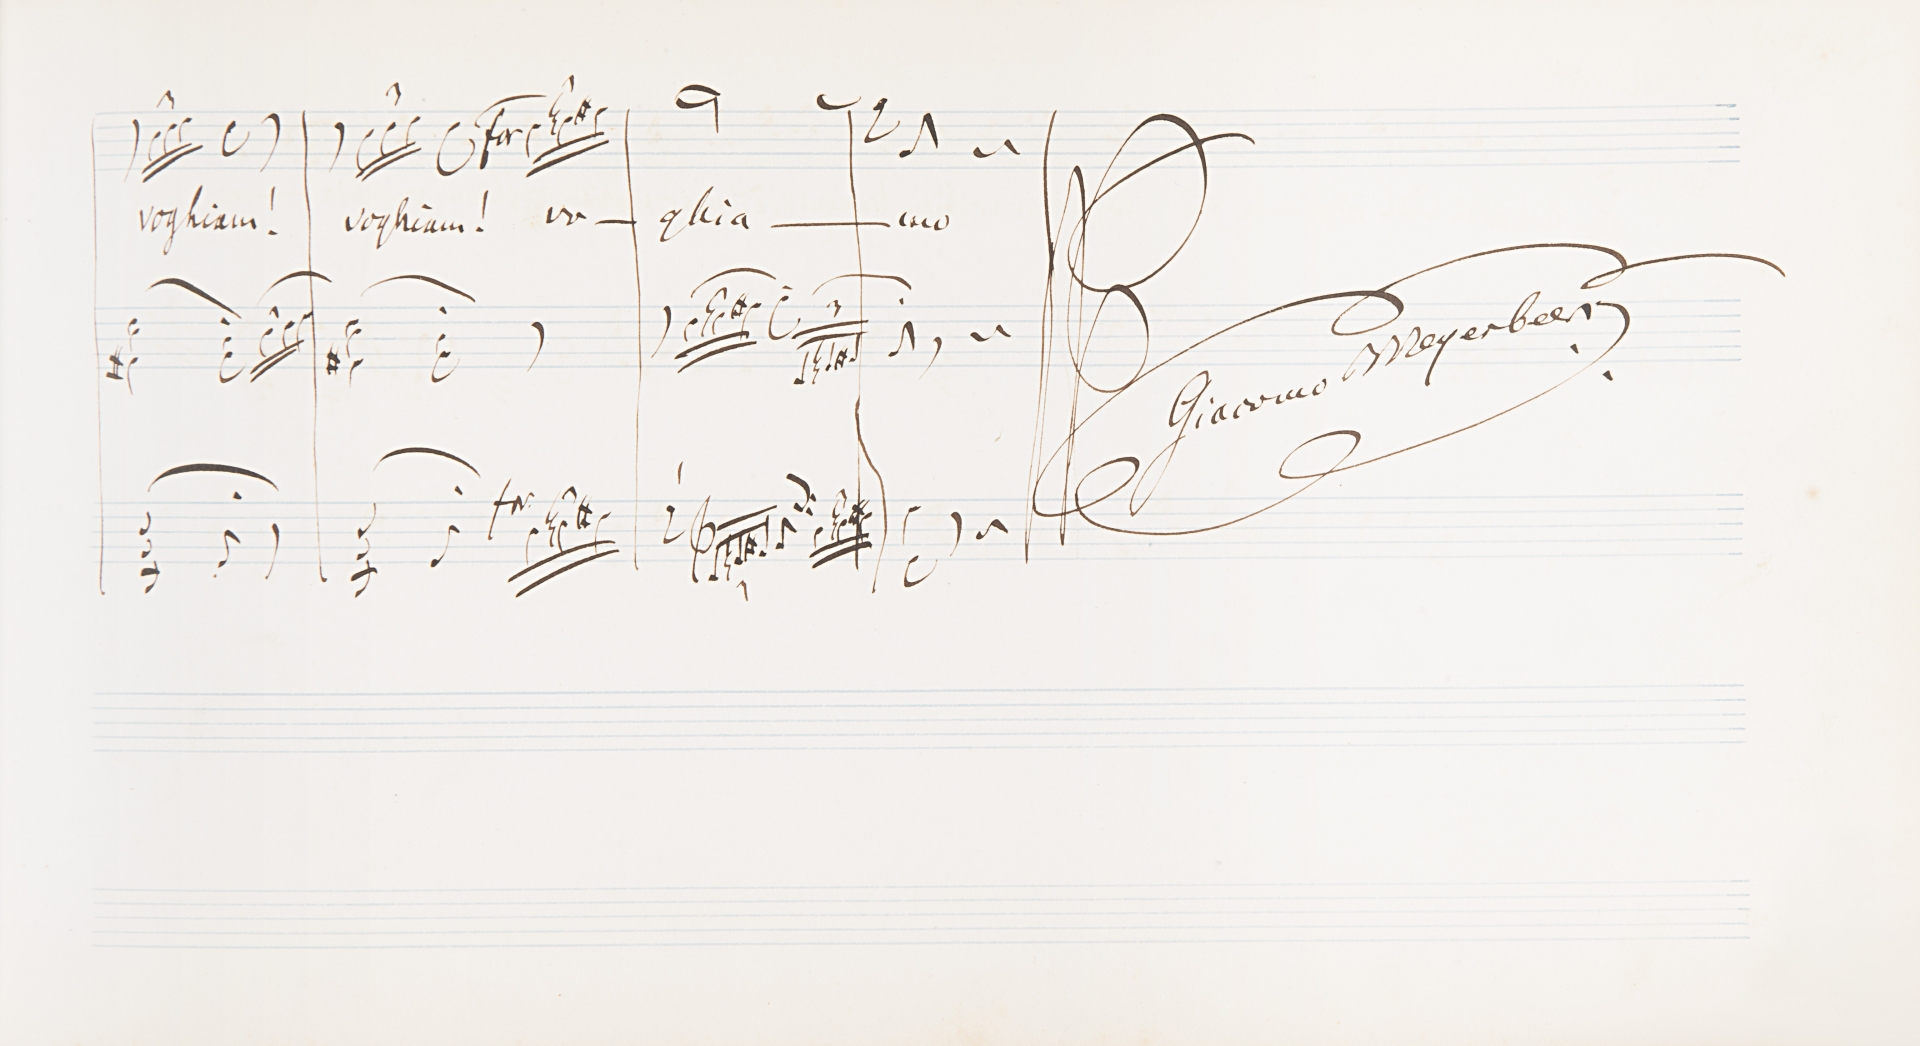 voghiam! voghiam! vo — ghia — mo
Giacomo Meyerbeer